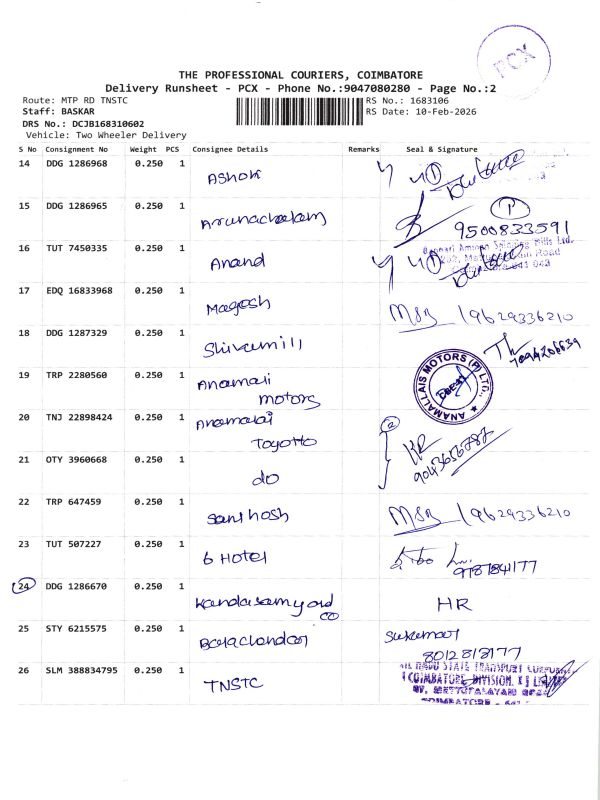 PCX
THE PROFESSIONAL COURIERS, COIMBATORE
Delivery Runsheet - PCX - Phone No.:9047080280 - Page No.:2
Route: MTP RD TNSTC
RS No.: 1683106
Staff: BASKAR
RS Date: 10-Feb-2026
DRS No.: DCJB168310602
Vehicle: Two Wheeler Delivery
S No Consignment No Weight PCS Consignee Details Remarks Seal & Signature
14 DDG 1286968 0.250 1 Ashok
15 DDG 1286965 0.250 1 Arunachalam
P
9500833591
16 TUT 7450335 0.250 1 Anand
Bannari Amman Spinning Mills Ltd.
Road
641 043
17 EDQ 16833968 0.250 1 Magesh
MSR 19629336210
18 DDG 1287329 0.250 1 Shivamill
19 TRP 2280560 0.250 1 Anamali
motors
ANAMALLAIS MOTORS (P) LTD.,
20 TNJ 22898424 0.250 1 Anamalai
Toyotto
2
KR
9043656787
21 OTY 3960668 0.250 1 do
22 TRP 647459 0.250 1 santhosh
MSR 19629336210
23 TUT 507227 0.250 1 6 Hotel
978784177
24 DDG 1286670 0.250 1 Kandasamy and
co
HR
25 STY 6215575 0.250 1 Balachander
Sukumar
8012818177
26 SLM 388834795 0.250 1 TNSTC
TAMIL NADU STATE TRANSPORT CORPORATION
(COIMBATORE DIVISION. I) LIMITED
METTUPALAYAM ROAD
COIMBATORE - 641